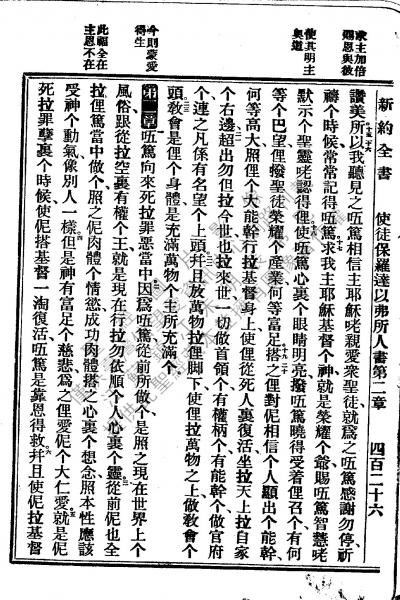 求主加倍
賜恩與彼
使其明主
奧道
今則蒙愛
得生
此福全在
主恩不在
新約全書 使徒保羅達以弗所人書第二章 四百二十六
讚美所以我聽見之㕶篤相信主耶穌咾親愛衆聖徒就爲之㕶篤感謝勿停祈
禱个時候常常記得㕶篤求我主耶穌基督个神就是榮耀个爺賜㕶篤智慧咾
默示个聖靈咾認得俚使㕶篤心裏个眼睛明亮撥㕶篤曉得受着俚召个有何
等个巴望俚撥聖徒榮耀个產業何等富足搭之俚對伲相信个人顯出个能幹
何等高大照俚个大能幹行拉基督身上使俚從死人裏復活坐拉天上拉自家
个右邊超出勿但拉今世也拉來世一切做首領个有權柄个有能幹个做官府
个連之凡係有名望个上頭幷且放萬物拉俚脚下使俚拉萬物之上做敎會个
頭敎會是俚个身體是充滿萬物个主所充滿个
第二章 㕶篤向來死拉罪惡當中因爲㕶篤從前所做个是照之現在世界上个
風俗跟從拉空裏有權个王就是現在行拉勿依順个人心裏个靈從前伲也全
拉俚篤當中做个照之伲肉體个情慾成功肉體搭之心裏个想念照本性應該
受神个動氣像別人一樣但是神有富足个慈悲爲之俚愛伲个大仁愛就是伲
死拉罪孽裏个時候使伲搭基督一淘復活㕶篤是靠恩得救幷且使伲拉基督